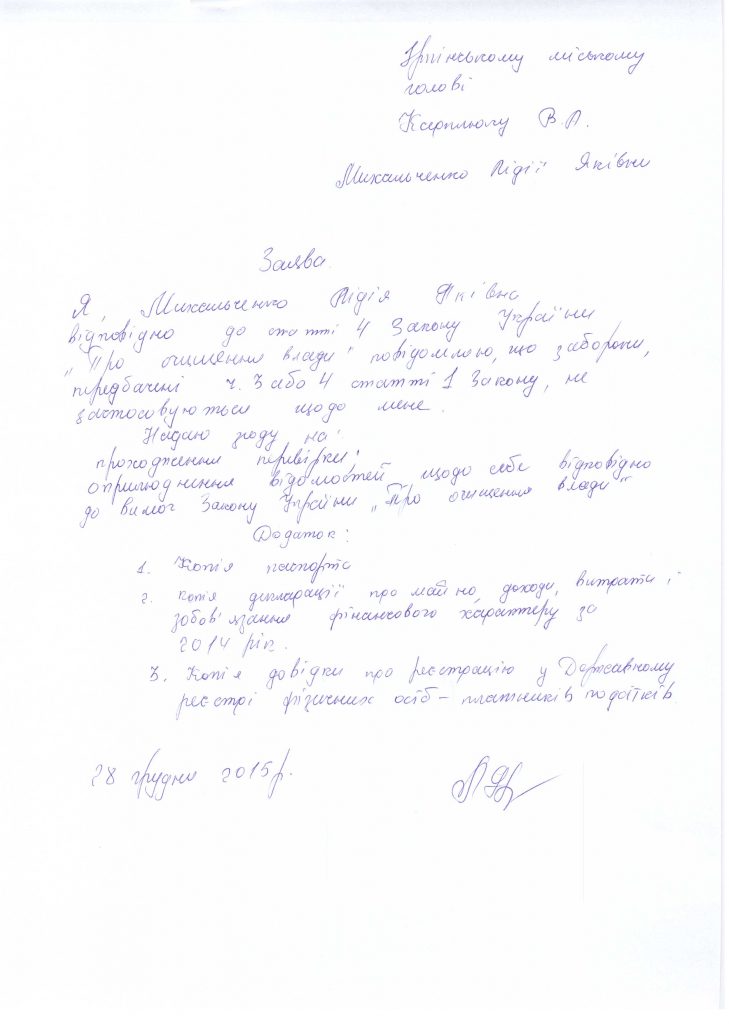 Ірпінському міському
голові
Карплюку В.А.
Михальченко Лідії Яківни
Заява.
Я, Михальченко Лідія Яківна
відповідно до статті 4 Закону України
"Про очищення влади" повідомляю, що заборони,
передбачені ч. 3 або 4 статті 1 Закону, не
застосовуються щодо мене.
Надаю згоду на:
проходження перевірки;
оприлюднення відомостей щодо себе відповідно
до вимог Закону України "Про очищення влади"
Додаток:
1. Копія паспорта
2. копія декларації про майно, доходи, витрати і
зобов'язання фінансового характеру за
2014 рік.
3. Копія довідки про реєстрацію у Державному
реєстрі фізичних осіб – платників податків
28 грудня 2015 р.